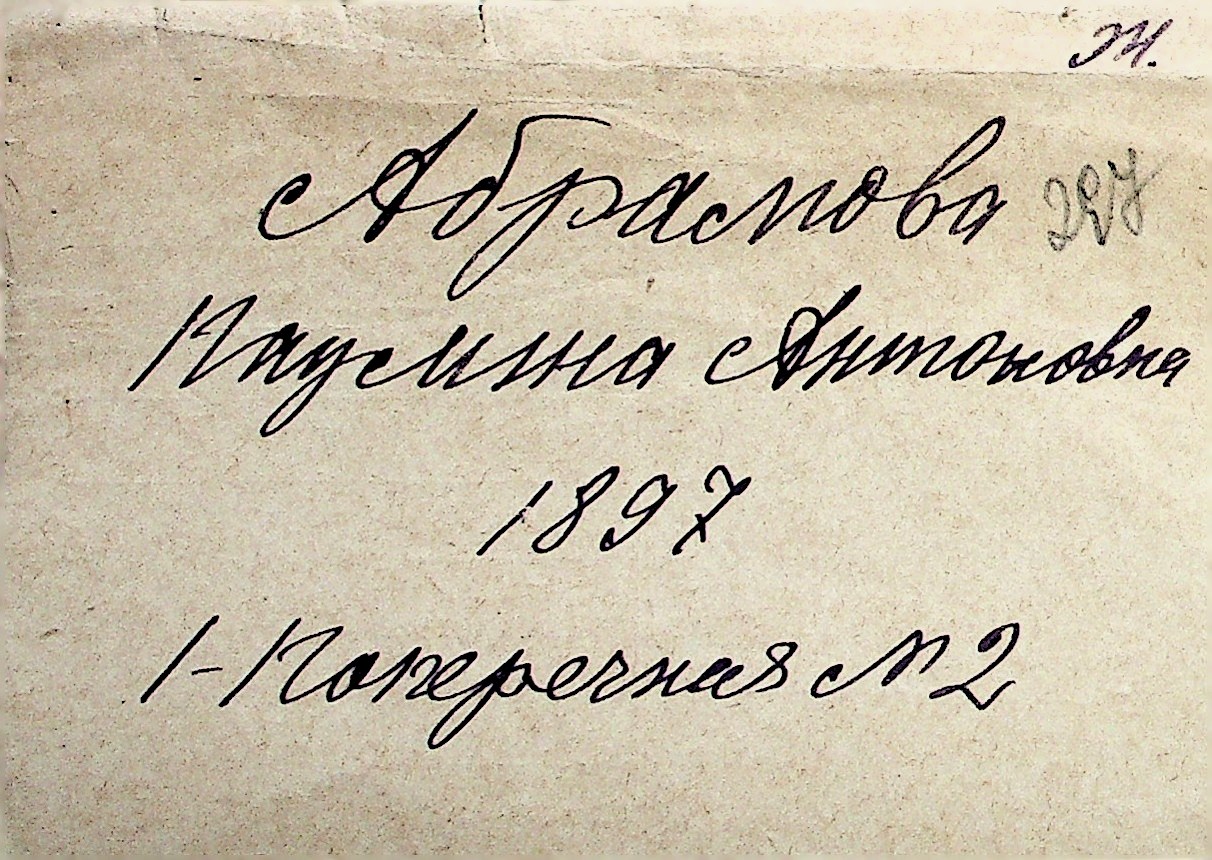 Ж.
Абрамова 227
Паулина Антоновна
1897
1-Поперечная N 2